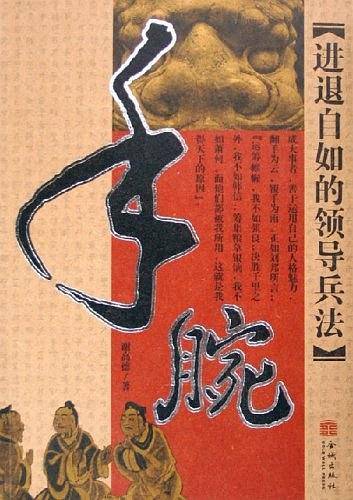 【进退自如的领导兵法】
成大事者，善于运用自己的人格魅力，
翻手为云，覆手为雨，正如刘邦所言：
『运筹帷幄，我不如张良；决胜千里之
外，我不如韩信；筹集粮草银饷，我不
如萧何，而他们都被我所用，这就是我
得天下的原因』。
手腕
著
金城出版社
GOLD WALL PRESS